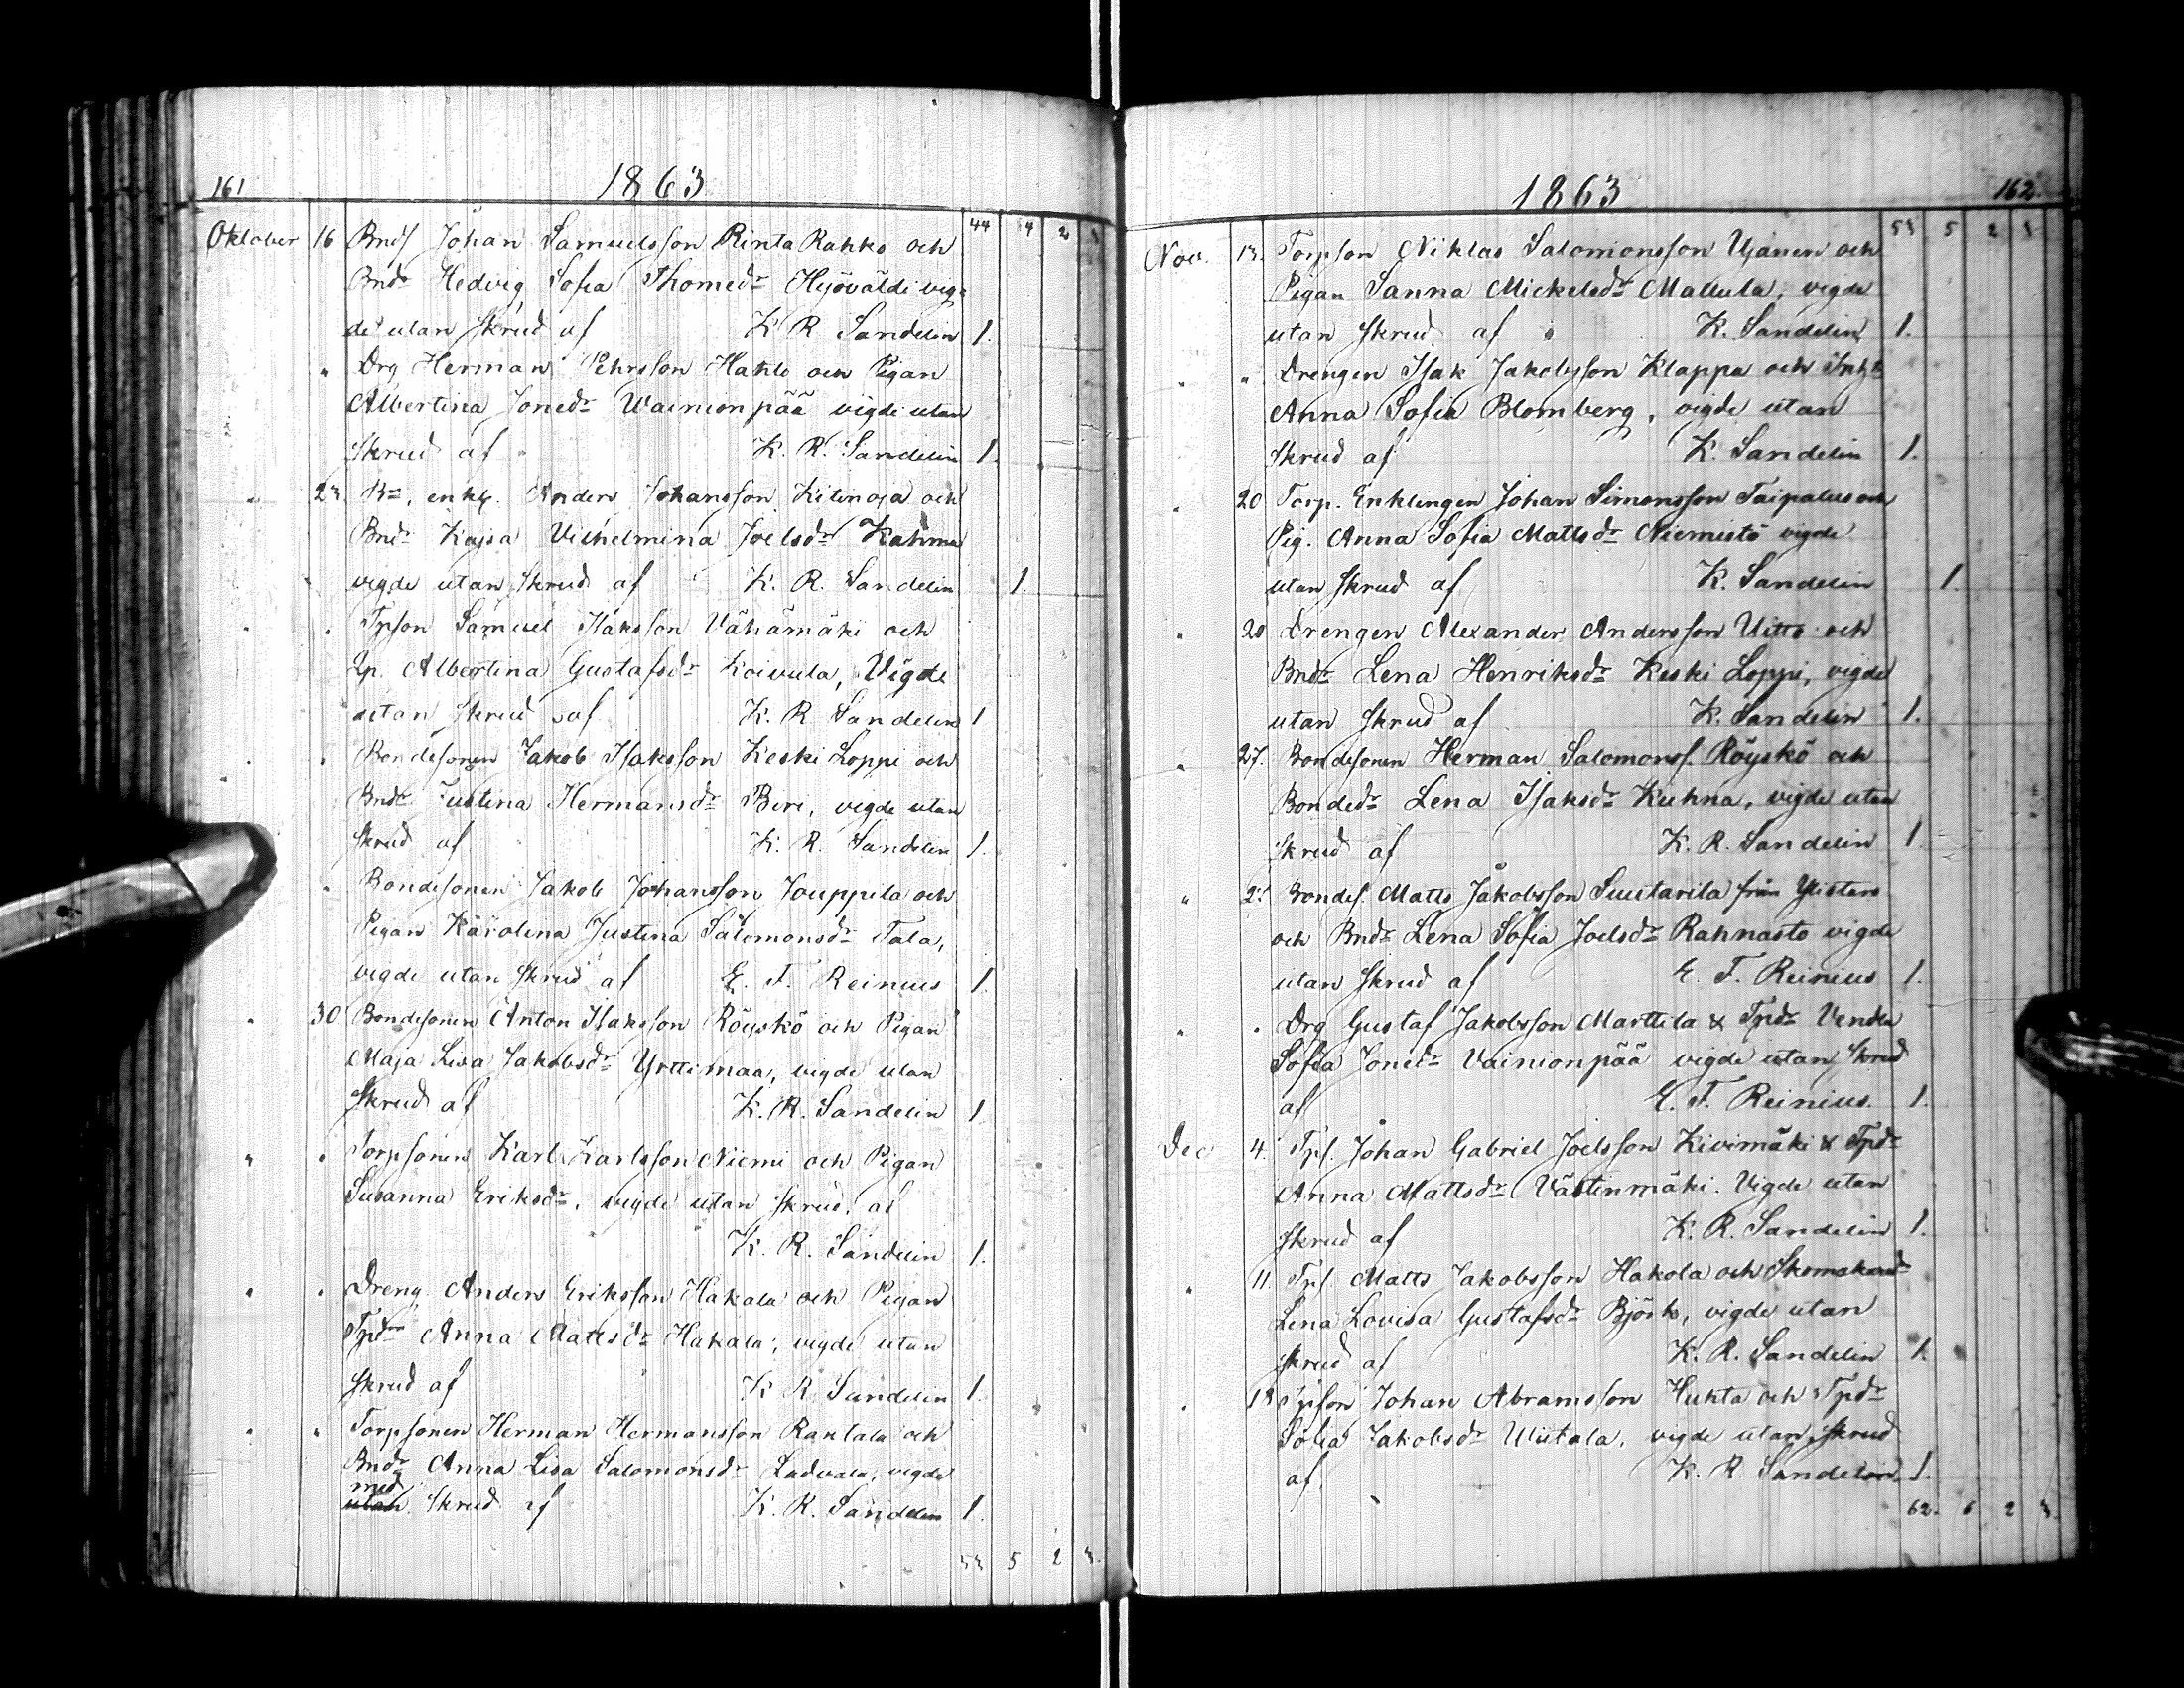 161
1863
44 4 2 3
Oktober 16 Bndf Johan Samuelsson Rinta Rahko och
Bndr Hedvig Sofia Thomedr Hyöväldi vig-
de utan skrud af K R Sandelin 1.
" Drg Herman Pehrsson Hakko och Pigan
Albertina Jonedr Wainionpää vigde utan
Skrud af K. R. Sandelin 1.
" 23. Bn, enkl. Anders Johansson Kitinoja och
Bndr Kajsa Vilhelmina Joelsdr Kahma
vigde utan skrud af K. R. Sandelin 1.
" " Tpson Samuel Isaksson Vähämäki och
Albertina Gustafsdr Koivula, Vigde
utan skrud af K. R. Sandelin 1
" " Bondesonen Jakob Isaksson Keski Loppi och
Bndr Justina Hermansdr Beri, vigde utan
Skrud af K. R. Sandelin 1.
" Bondesonen Jakob Johansson Jouppila och
Pigan Karolina Justina Salomonsdr Tala,
vigde utan skrud af E. F. Reinius 1.
" 30 Bondesonen Anton Isaksson Röyskö och Pigan
Maja Lisa Jakobsdr Yrttimaa, vigde utan
Skrud af K. R. Sandelin 1
" " Torpsonen Karl Karlsson Niemi och Pigan
Susanna Eriksdr, vigde utan skrud, af
K. R. Sandelin 1.
" " Dreng Anders Eriksson Hakala och Pigan
Tpdr Anna Mattsdr Hakala, vigde utan
skrud af K R Sandelin 1.
" " Torpsonen Herman Hermansson Rantala och
Bndr Anna Lisa Salomonsdr Ladvala, vigde
med
utan skrud af K. R. Sandelin 1.
53 5 2 3.
1863
162
53 5 2 3
Nov. 13. Torpson Niklas Salomonsson Ujanen och
Pigan Sanna Mickelsdr Mallula, vigde
utan skrud af K. Sandelin 1.
" " Drengen Isak Jakobsson Klappa och
Anna Sofia Blomberg, vigde utan
skrud af K. Sandelin 1.
" 20 Torp. Enklingen Johan Simonsson Taipalus och
Pig. Anna Sofia Mattsdr Niemistö vigde
utan skrud af K. Sandelin 1.
" 20 Drengen Alexander Andersson Uitto och
Bndr Lena Henriksdr Keski Loppi, vigde
utan skrud af K. Sandelin 1.
" 27. Bondesonen Herman Salomonss. Röyskö och
Bondedr Lena Isaksdr Kuhna, vigde utan
skrud af K. R. Sandelin 1.
" Bondes. Matts Jakobsson Suutarila från Ylistaro
och Bndr Lena Sofia Joelsdr Rahnasto vigde
utan skrud af E. F. Reinius 1.
" " Drg Gustaf Jakobsson Marttila & Tpdr Vendla
Sofia Jonedr Vainionpää vigde utan skrud
af E. F. Reinius. 1.
Dec 4. Tps. Johan Gabriel Joelsson Kivimäki & Tpdr
Anna Mattsdr Västinmäki. Vigde utan
skrud af K. R. Sandelin 1.
" 11. Tps. Matts Jakobsson Hakola och Skomakaredr
Lena Lovisa Gustafsdr Björk, vigde utan
skrud af K. R. Sandelin 1.
" 18 Tpson Johan Abramsson Huhta och Tpdr
Sofia Jakobsdr Uiitala, vigde utan skrud
af K. R. Sandelin 1.
62. 6 2 3.